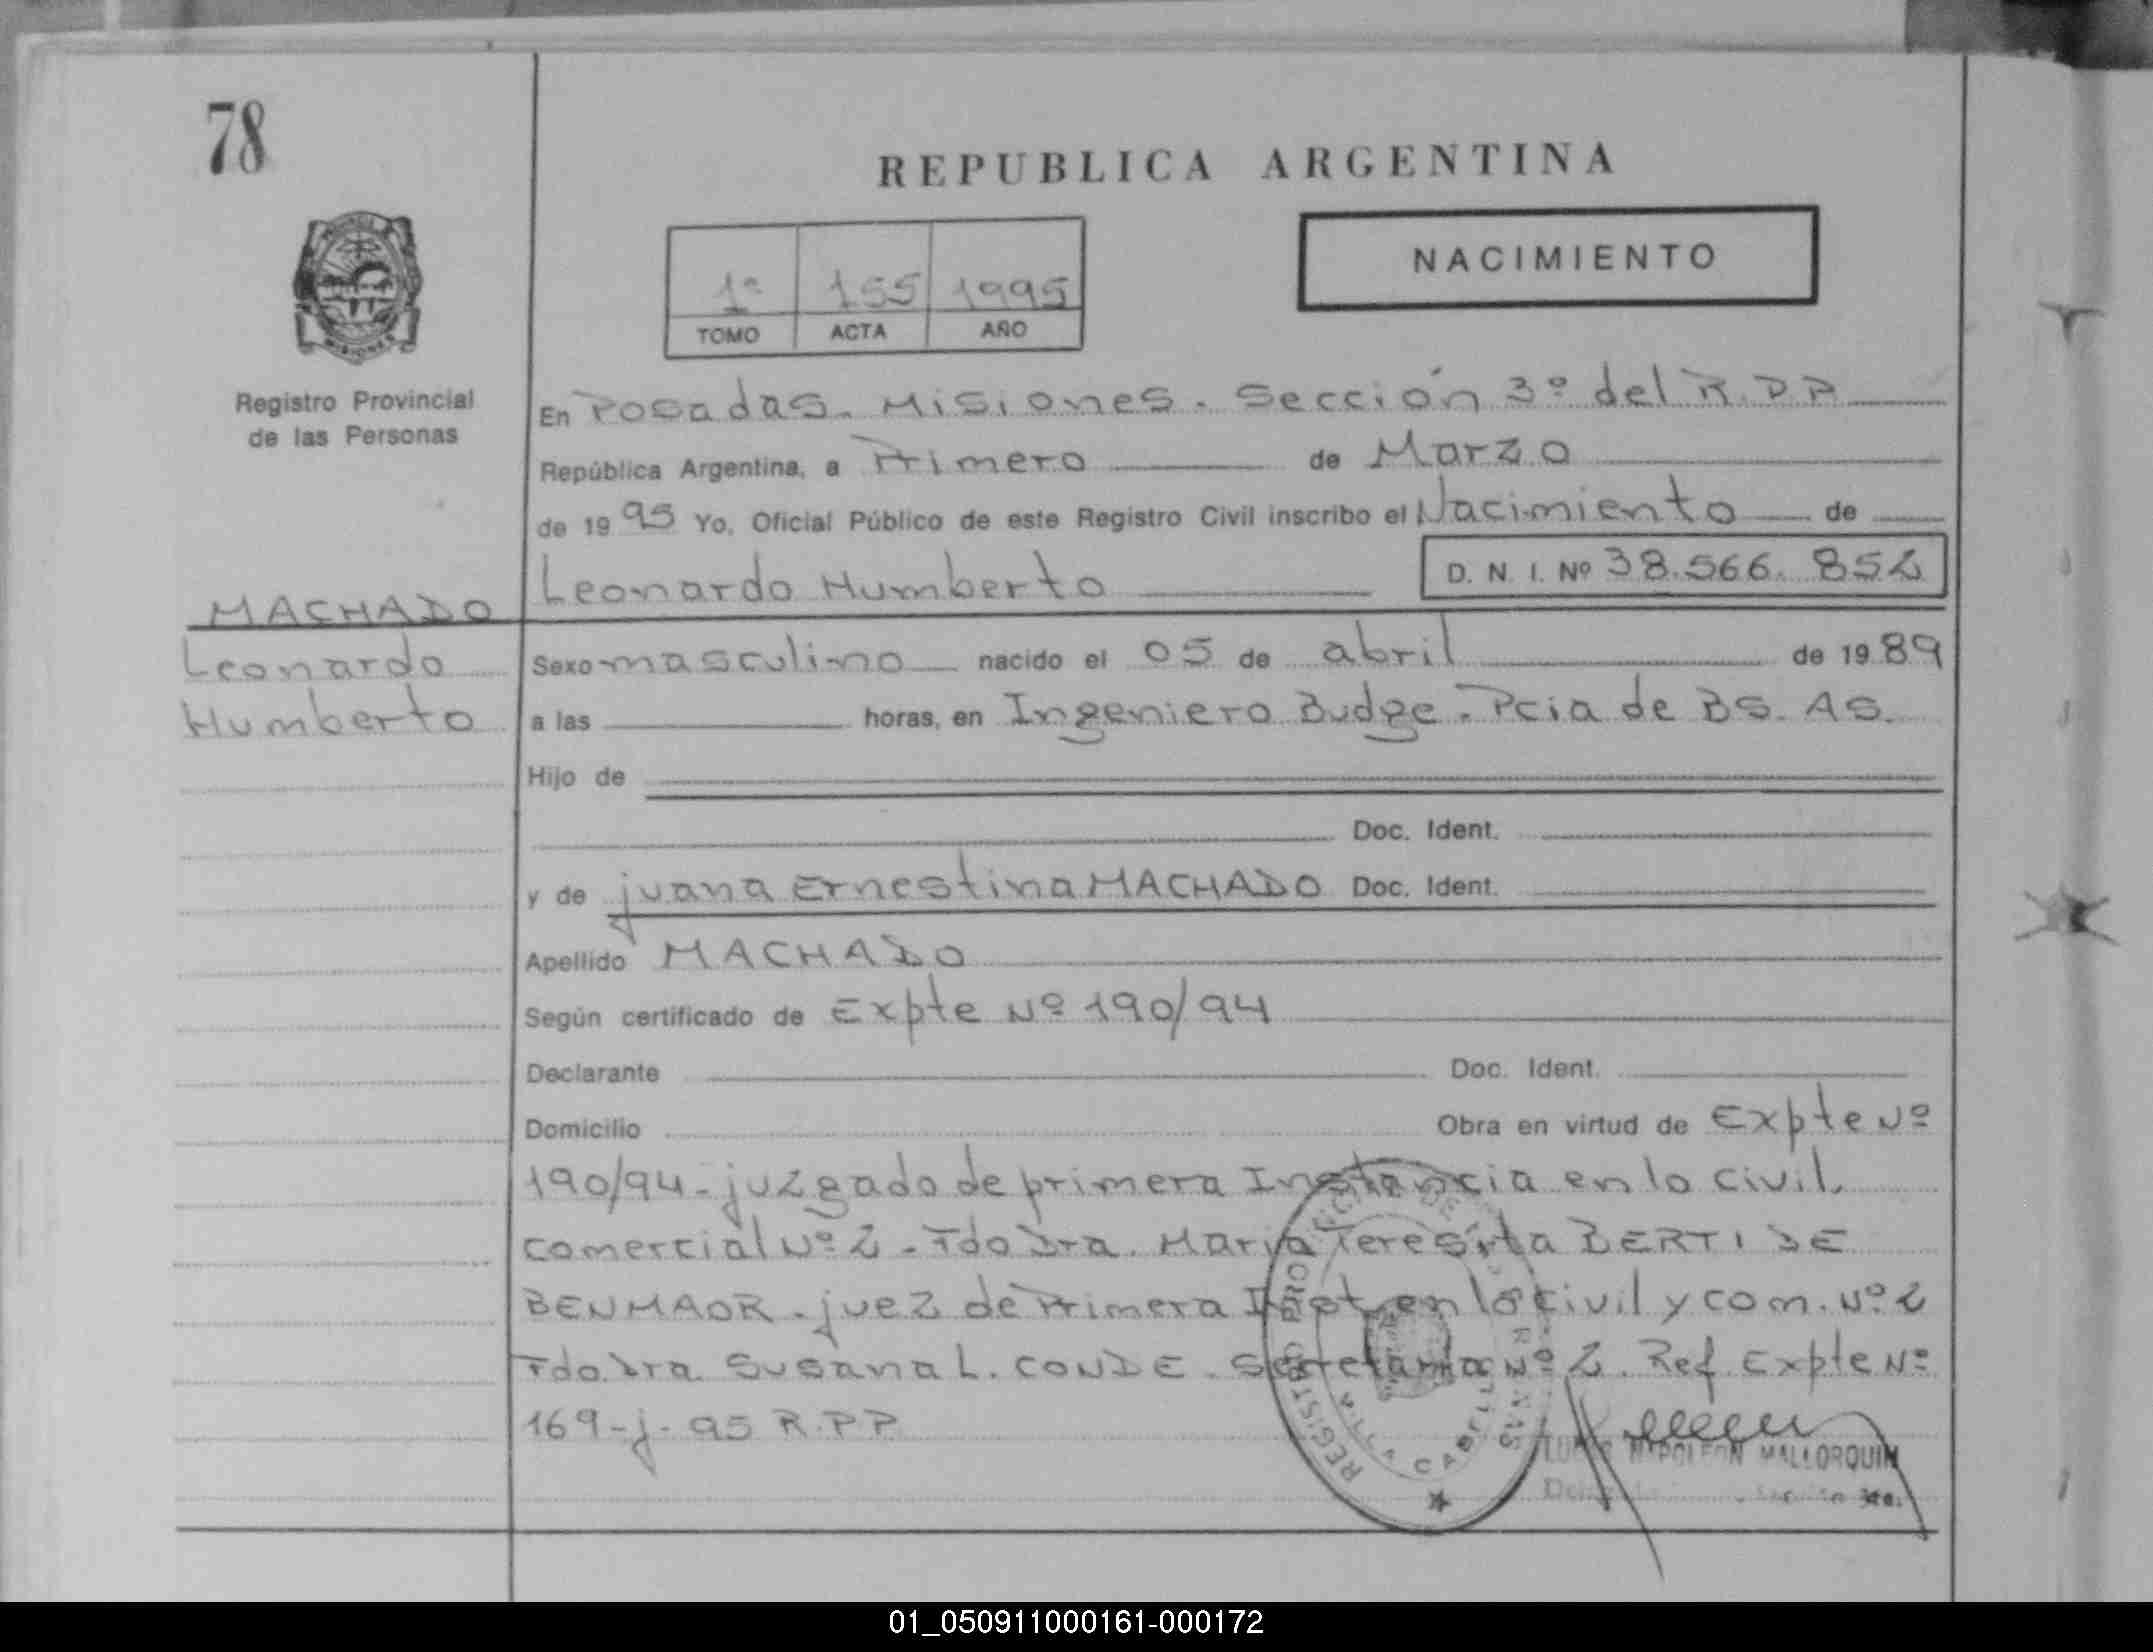 78
REPUBLICA ARGENTINA
NACIMIENTO
1º 155 1995
TOMO ACTA AÑO
MISIONES
Registro Provincial
de las Personas
En Posadas. Misiones. Sección 3º del R.P.P
República Argentina, a Primero de Marzo
de 1995 Yo, Oficial Público de este Registro Civil inscribo el Nacimiento de
Leonardo Humberto D. N. I. Nº 38.566.852
MACHADO
Leonardo
Humberto
Sexo masculino nacido el 05 de abril de 1989
a las horas, en Ingeniero Budge. Pcia de BS. AS.
Hijo de
Doc. Ident.
y de juana Ernestina MACHADO Doc. Ident.
Apellido MACHADO
Según certificado de Expte Nº 190/94
Declarante Doc. Ident.
Domicilio Obra en virtud de Expte Nº
190/94 - juzgado de primera Instancia en lo civil
comercial Nº 2 - Fdo Dra. Maria Teresita BERTI DE
BENMAOR - juez de Primera Inst en lo civil y com. Nº 2
Fdo. Dra Susana L. CONDE. Secretaria Nº 2. Ref Expte Nº
169-j-95 R.P.P
REGISTRO PROV DE
VILLA CABELL
NAPOLEON MALLORQUIN
3ra.
01_050911000161-000172